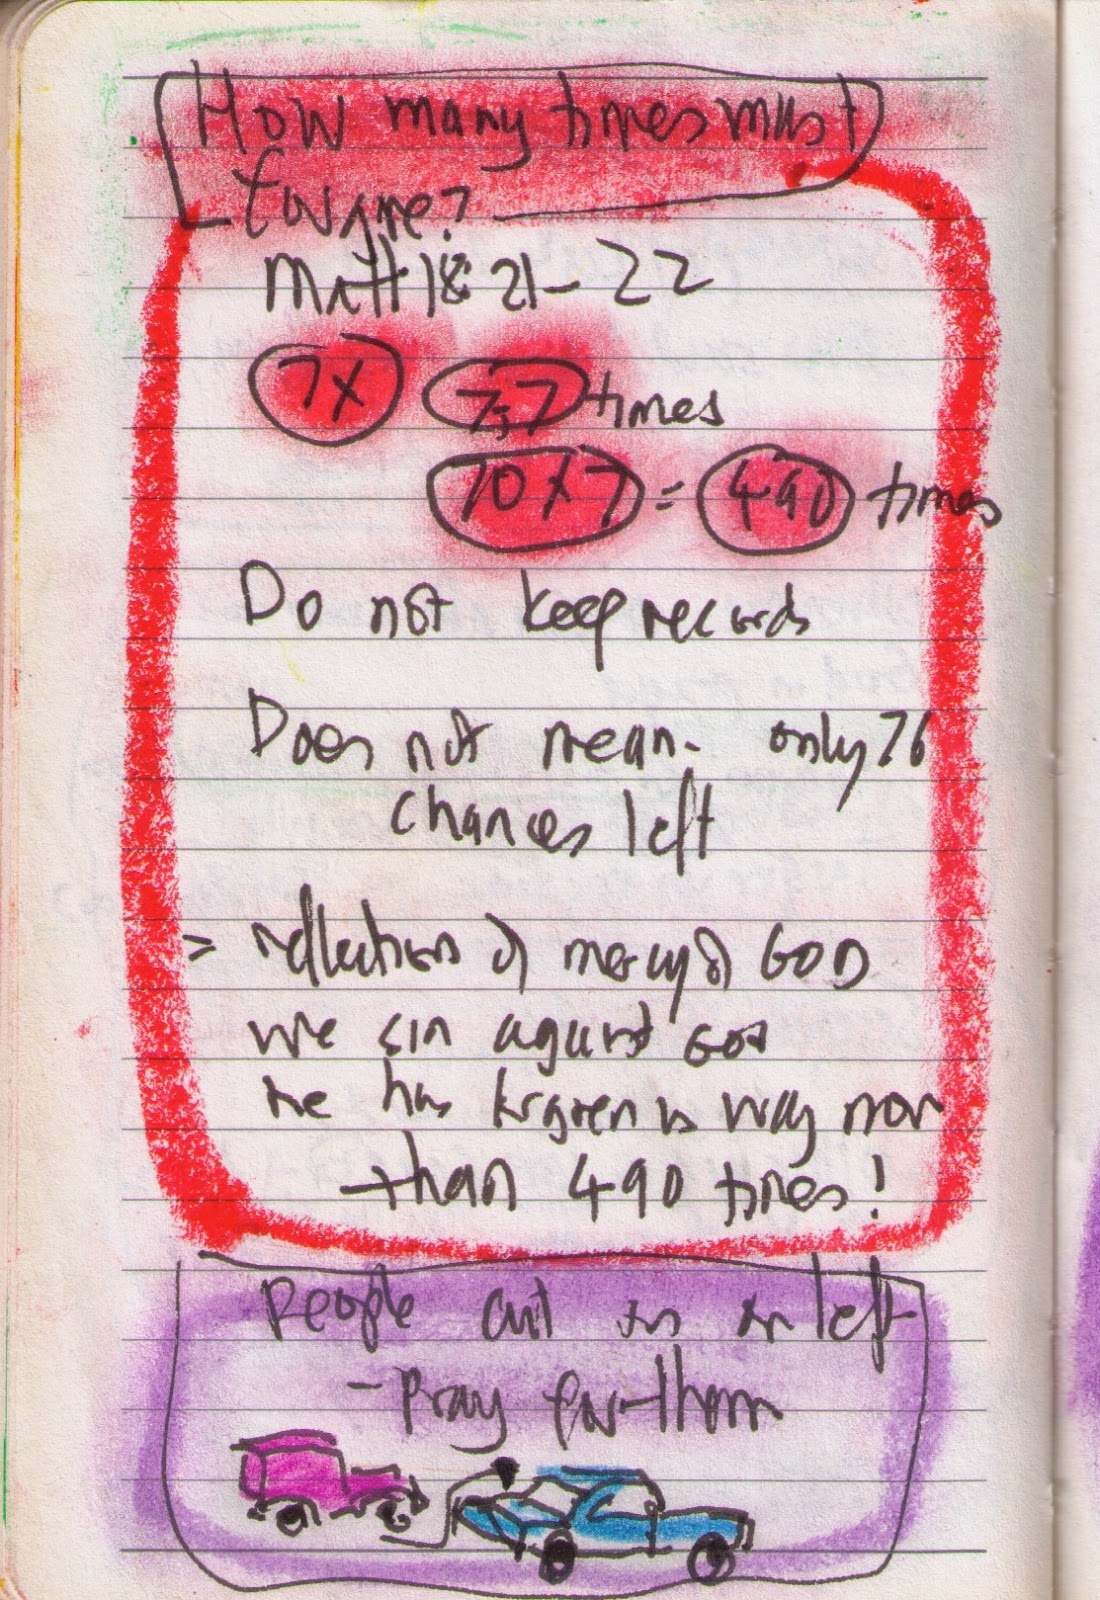 How many times must
forgive?
Matt 18:21-22
7x 7,7 times
70 x 7 = 490 times
Do not keep records
Does not mean - only 76
chances left
> reflections of mercy of GOD
we sin against God
He has forgiven us way more
than 490 times!
People cut us on left
- Pray for them